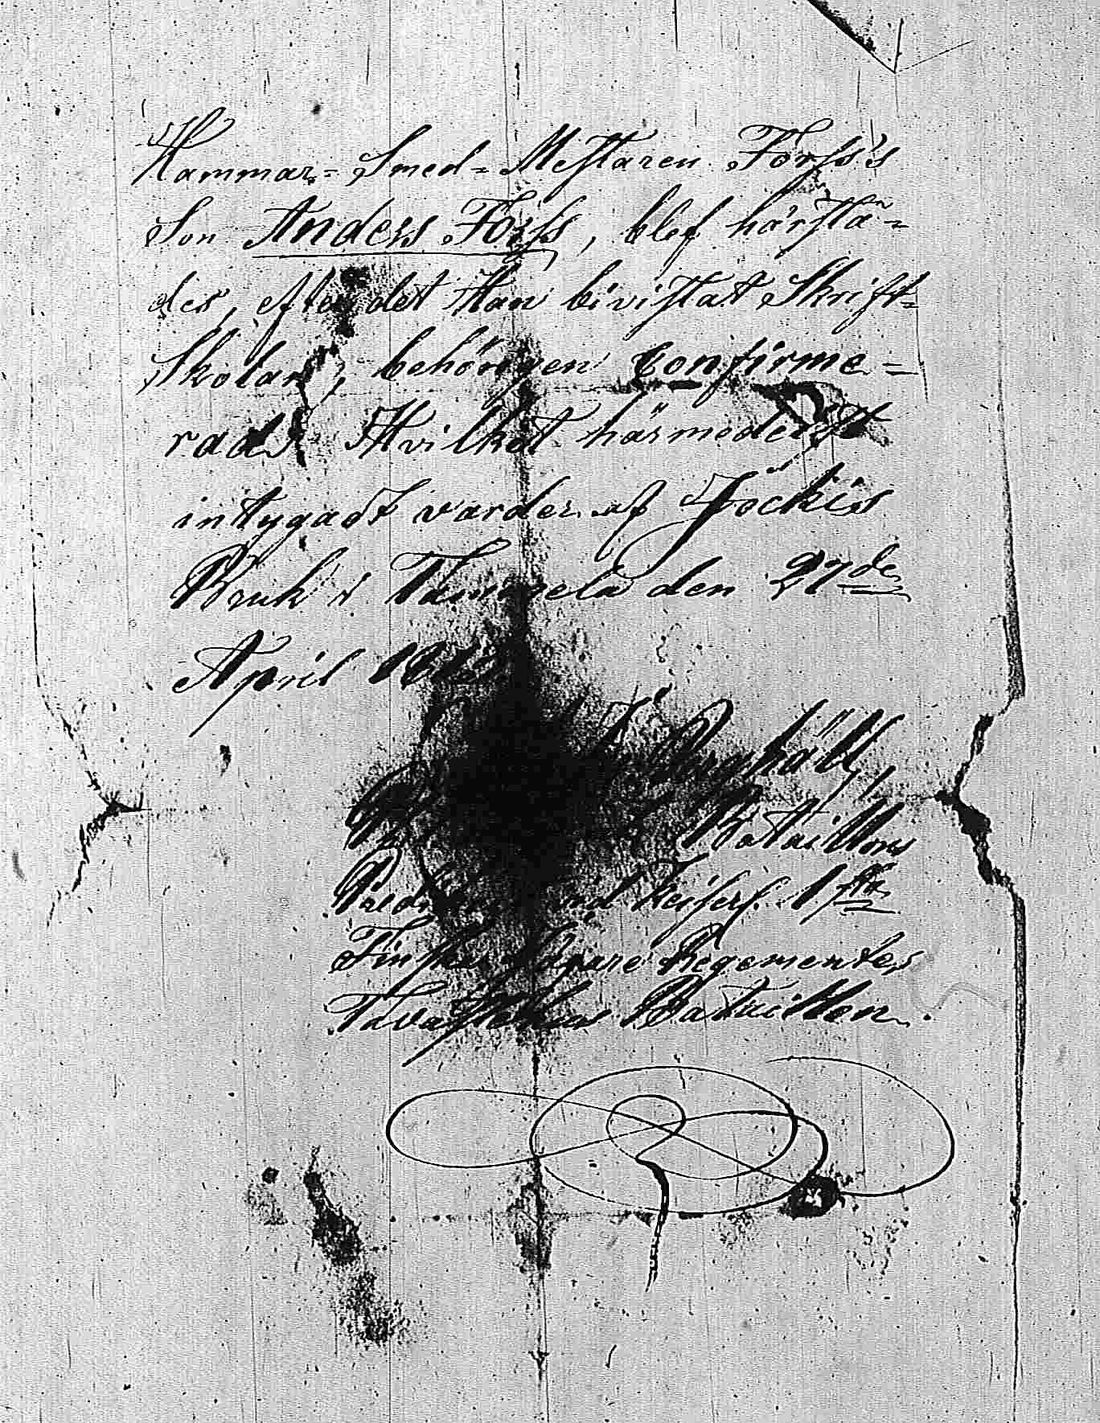 Hammar-Smed-Mestaren Forss's
Son Anders Forss, blef härstä-
des, efter det Han bivistat Skrift-
Skolan, behörigen Confirme-
rad. Hvilket härmedelst
intygadt varder af Jockis
Bruk i Tammela den 27de
April
Berghäll,
Bataillons
Keiserl. 1sta
Finska Regementes
Tavastehus Bataillon.